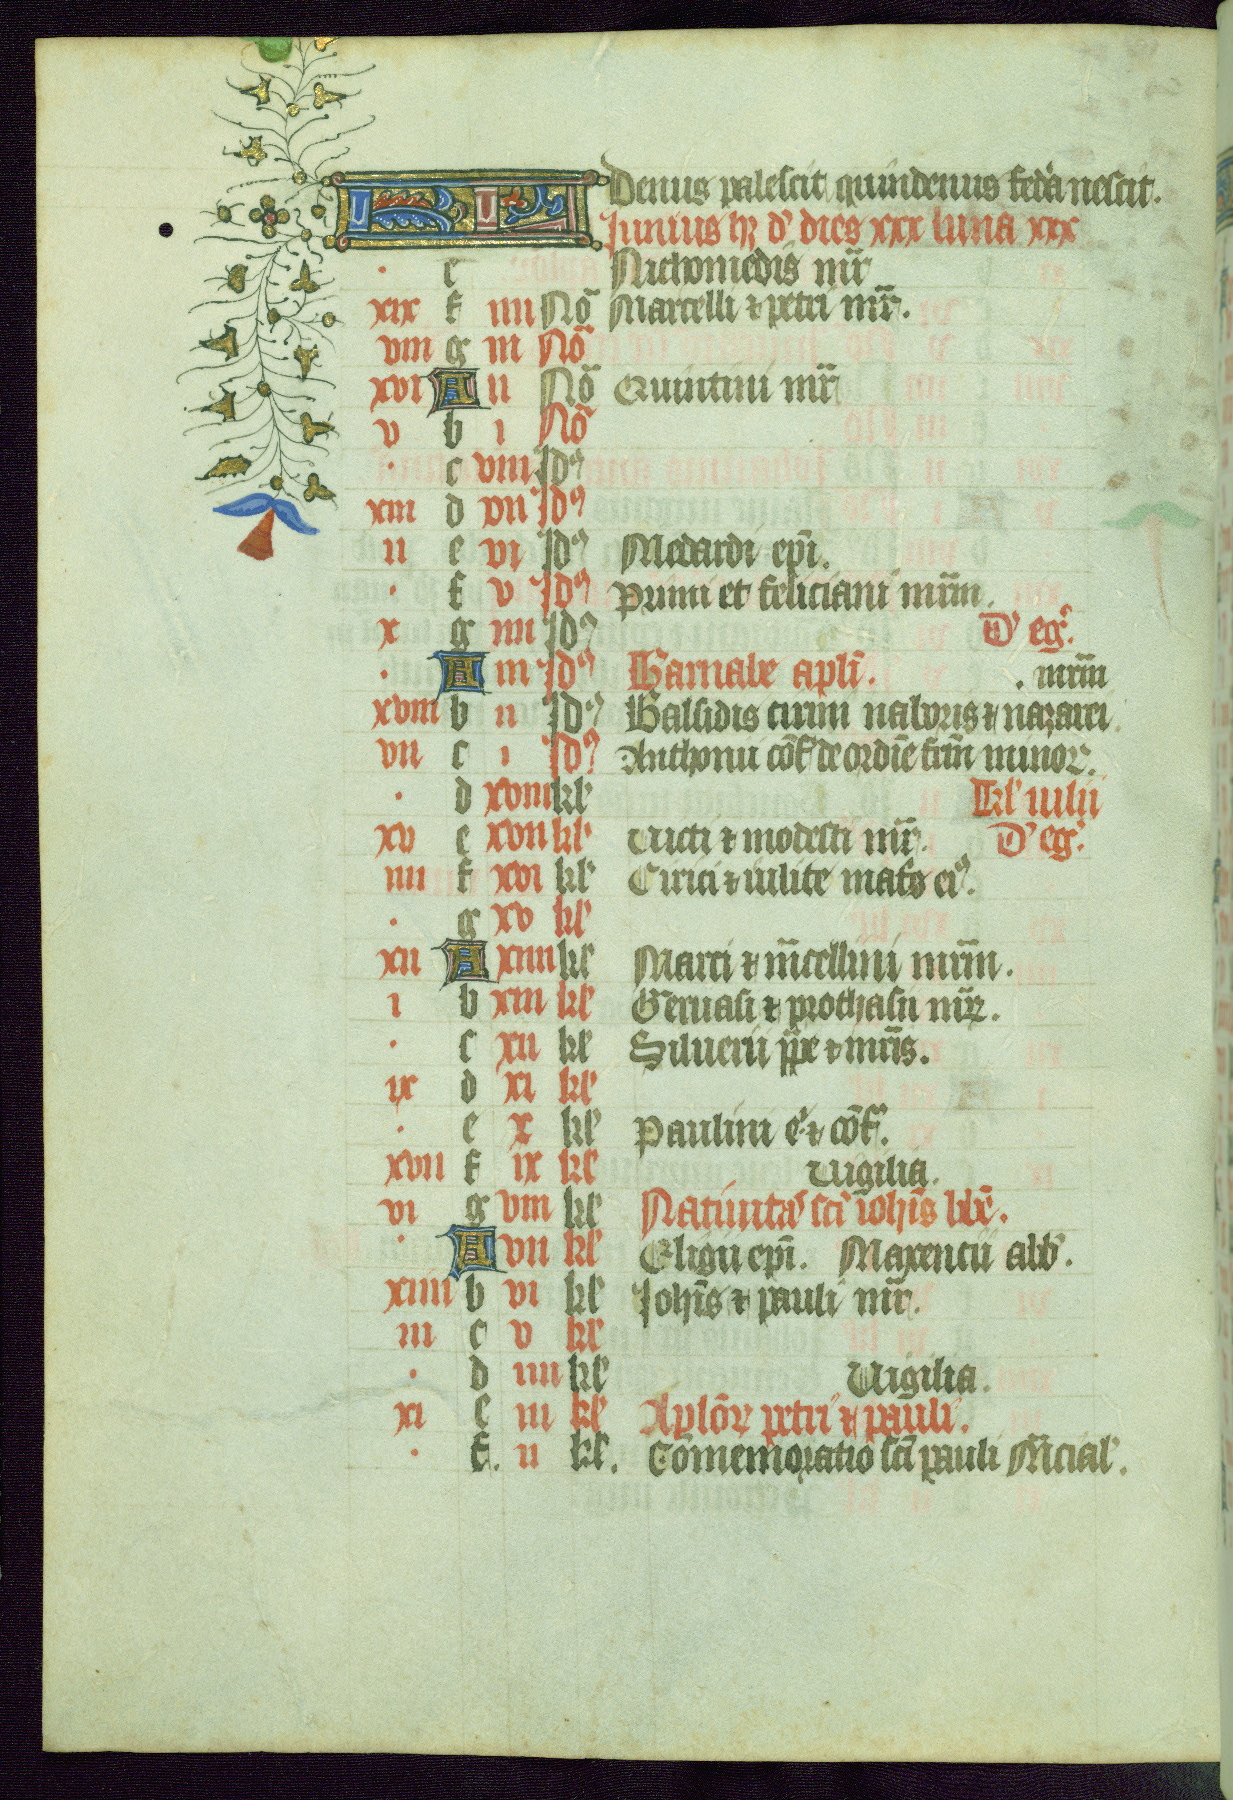 KL Denus palescit quindenus feda nescit.
Junius hȝ d' dies xxx luna xxx
. e Nichomedis mr̄
xix f iiii Nō Marcelli ⁊ petri mr̄.
viii g iii Nō
xvi A ii Nō Quintini mr̄
v b i Nō
. c viii Jdꝰ
xiii d vii Jdꝰ
ii e vi Jdꝰ Medardi ep̄i.
. f v Jdꝰ Primi et feliciani mr̄m.
x g iiii Jdꝰ D' eg'.
. A iii Jdꝰ Barnabe apl̄i. . mr̄m
xviii b ii Jdꝰ Balsidis cirini naboris ⁊ nazarei
vii c i Jdꝰ Anthonii cōf de ordīe fr̄m minoꝝ.
. d xviii kl' Kl' iulii
xv e xvii kl' Victi ⁊ modesti mr̄. D' eg'.
iiii f xvi kl' Cirici ⁊ iulite mat̄s eiꝰ.
. g xv kl'
xii A xiiii kl' Marci ⁊ m̄cellini mr̄m.
i b xiii kl' Geruasi ⁊ prothasii mr̄ꝝ.
. c xii kl' Siluerii pp̄e ⁊ mr̄is.
ix d xi kl'
. e x kl' Paulini e' ⁊ cōf'.
xvii f ix kl' Vigilia.
vi g viii kl' Natiuita' sc̄i ioh̄is bb̄e.
. A vii kl' Eligii ep̄i. Maxencii abb'.
xiiii b vi kl' Joh̄is ⁊ pauli mr̄.
iii c v kl'
. d iiii kl' Vigilia.
xi e iii kl' Apl̄oꝝ petri ⁊ pauli.
. f. ii kl'. Cōmemoratio sc̄i pauli M̄cial'.